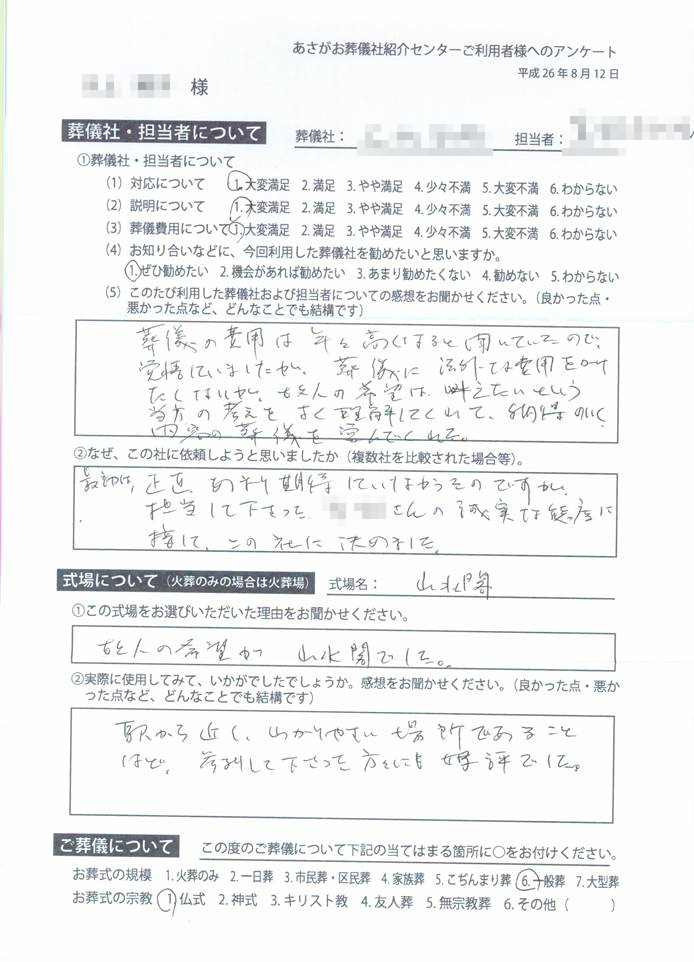 あさがお葬儀社紹介センターご利用者様へのアンケート
平成26年8月12日
様
葬儀社・担当者について 葬儀社： 担当者：
①葬儀社・担当者について
(1) 対応について 1.大変満足 2.満足 3.やや満足 4.少々不満 5.大変不満 6.わからない
(2) 説明について 1.大変満足 2.満足 3.やや満足 4.少々不満 5.大変不満 6.わからない
(3) 葬儀費用について 1.大変満足 2.満足 3.やや満足 4.少々不満 5.大変不満 6.わからない
(4) お知り合いなどに、今回利用した葬儀社を勧めたいと思いますか。
1.ぜひ勧めたい 2.機会があれば勧めたい 3.あまり勧めたくない 4.勧めない 5.わからない
(5) このたび利用した葬儀社および担当者についての感想をお聞かせください。（良かった点・
悪かった点など、どんなことでも結構です）
葬儀の費用は年々高くなると聞いていたので、
覚悟していましたが、葬儀に法外な費用をかけ
たくはないが、故人の希望は叶えたいという
当方の考えをよく理解してくれて、納得のいく
内容の葬儀を営んでくれた。
②なぜ、この社に依頼しようと思いましたか（複数社を比較された場合等）。
最初は、正直あまり期待していなかったのですが、
担当して下さった さんの誠実な態度に
接して、この社に決めました。
式場について（火葬のみの場合は火葬場） 式場名： 山水閣
①この式場をお選びいただいた理由をお聞かせください。
故人の希望が山水閣でした。
②実際に使用してみて、いかがでしたでしょうか。感想をお聞かせください。（良かった点・悪か
った点など、どんなことでも結構です）
駅から近く、わかりやすい場所であること
など、参列して下さった方々にも好評でした。
ご葬儀について この度のご葬儀について下記の当てはまる箇所に○をお付けください。
お葬式の規模 1.火葬のみ 2.一日葬 3.市民葬・区民葬 4.家族葬 5.こぢんまり葬 6.一般葬 7.大型葬
お葬式の宗教 1.仏式 2.神式 3.キリスト教 4.友人葬 5.無宗教葬 6.その他（ ）